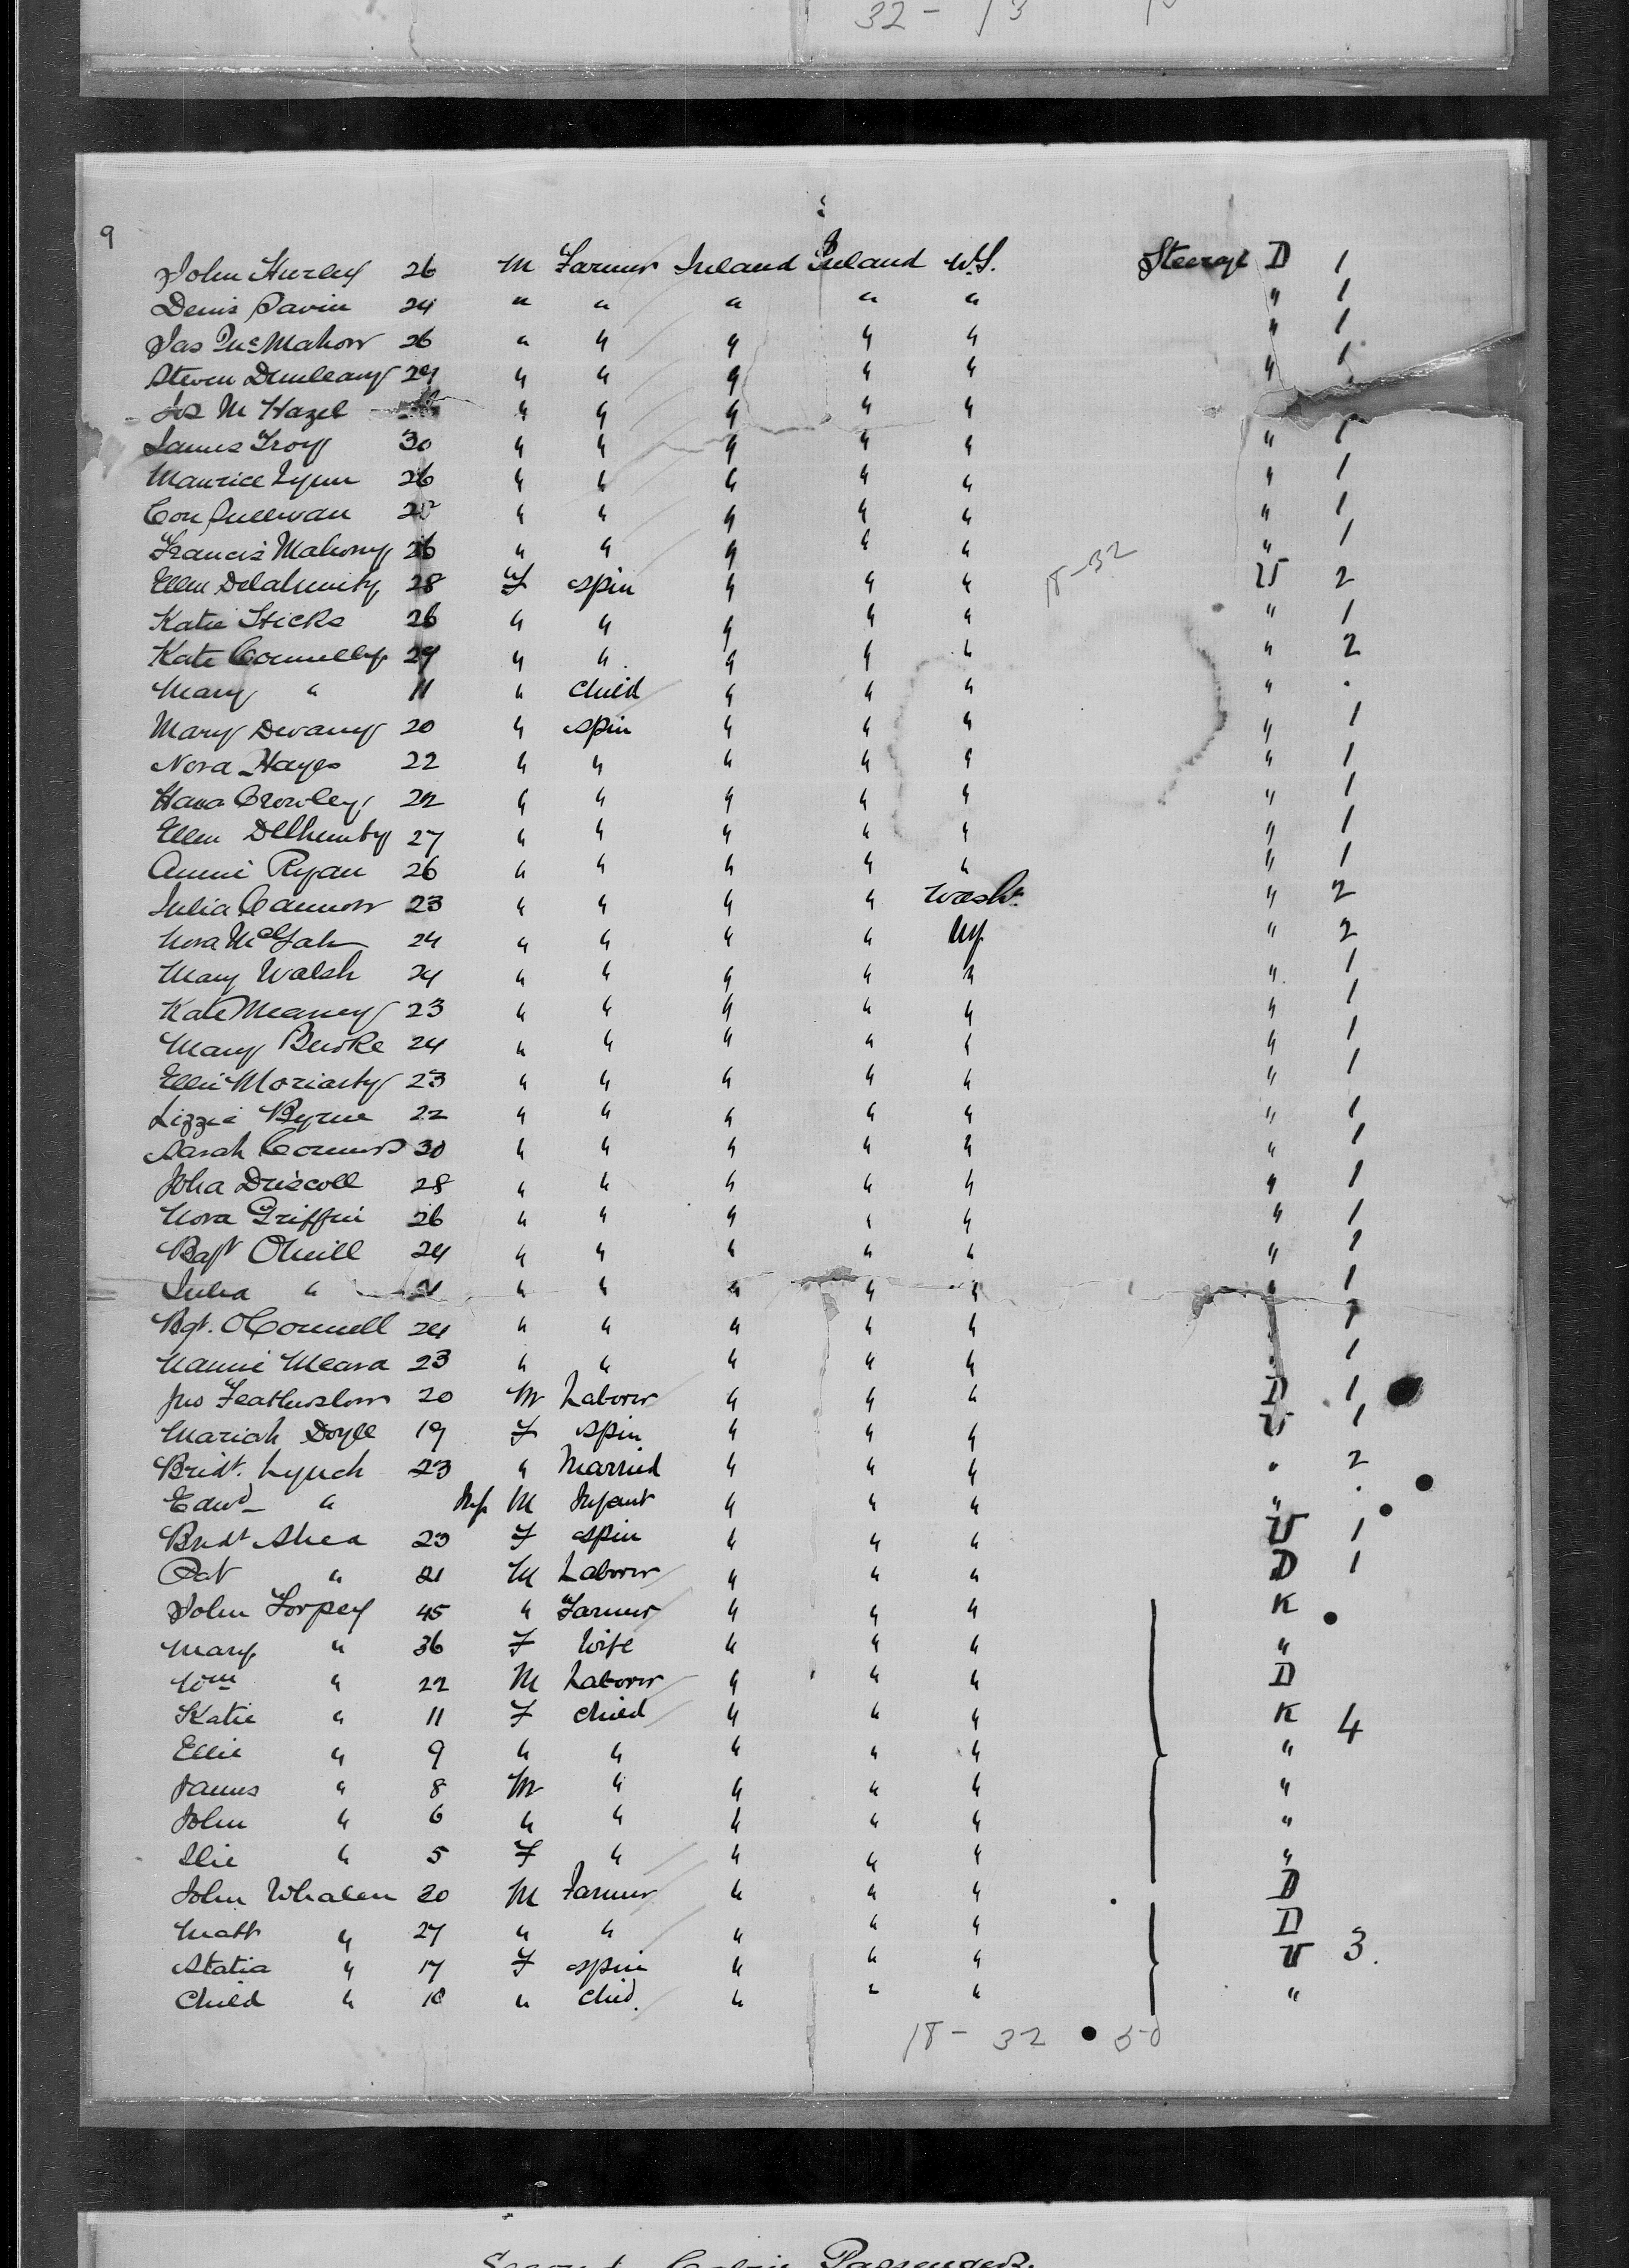 32 - 13
9
John Hurley 26 M Farmer Ireland Ireland U.S. Steerage D 1
Denis Pavin 24 " " " " " " 1
Jas McMahon 26 " " " " " " 1
Steven Dunleavy 29 " " " " " " 1
M Hazel " " " " "
James Troy 30 " " " " " " 1
Maurice Lynn 26 " " " " " " 1
Con Sullivan " " " " " " 1
Francis Mahony 26 " " " " " " 1
18-32
Ellen Delahunty 28 F spin " " " U 2
Katie Hicks 26 " " " " " " 1
Kate Connelly 29 " " " " " " 2
Mary " 11 " child " " " " .
Mary Devany 20 " spin " " " " 1
Nora Hayes 22 " " " " " " 1
Hana Crowley 22 " " " " " " 1
Ellen Delhunty 27 " " " " " " 1
Annie Ryan 26 " " " " " " 1
Julia Cannon 23 " " " " Washn. " 2
Nora 24 " " " " NY. " 2
Mary Walsh 24 " " " " " " 1
Kate Meaney 23 " " " " " " 1
Mary Burke 24 " " " " " " 1
Ellie Moriarty 23 " " " " " " 1
Lizzie Byrne 22 " " " " " " 1
Sarah Connors 30 " " " " " " 1
Joha Driscoll 28 " " " " " " 1
Nora Griffin 26 " " " " " " 1
ONeill 24 " " " " " " 1
Julia " 21 " " " " " " 1
Bgt. OConnell 24 " " " " " " 1
Nannie Meara 23 " " " " " " 1
Jno 20 M Laborer " " " D 1
Mariah Doyle 19 F spin " " " U 1
Bridt. Lynch 23 " Married " " " " 2
Edwd " Inf. M Infant " " " " .
Bridt Shea 23 F spin " " " U 1
Pat " 21 M Laborer " " " D 1
John Torpey 45 " Farmer " " " K
Mary " 36 F Wife " " " "
Wm " 22 M Laborer " " " D
Katie " 11 F child " " " K 4
Ellie " 9 " " " " " "
James " 8 M " " " " "
John " 6 " " " " " "
" 5 F " " " " "
John Whalen 20 M Farmer " " " D
Matt " 27 " " " " " D
Statia " 17 F spin " " " U 3.
Child " 10 " chid. " " " "
18 - 32 50
Second Cabin Passengers.